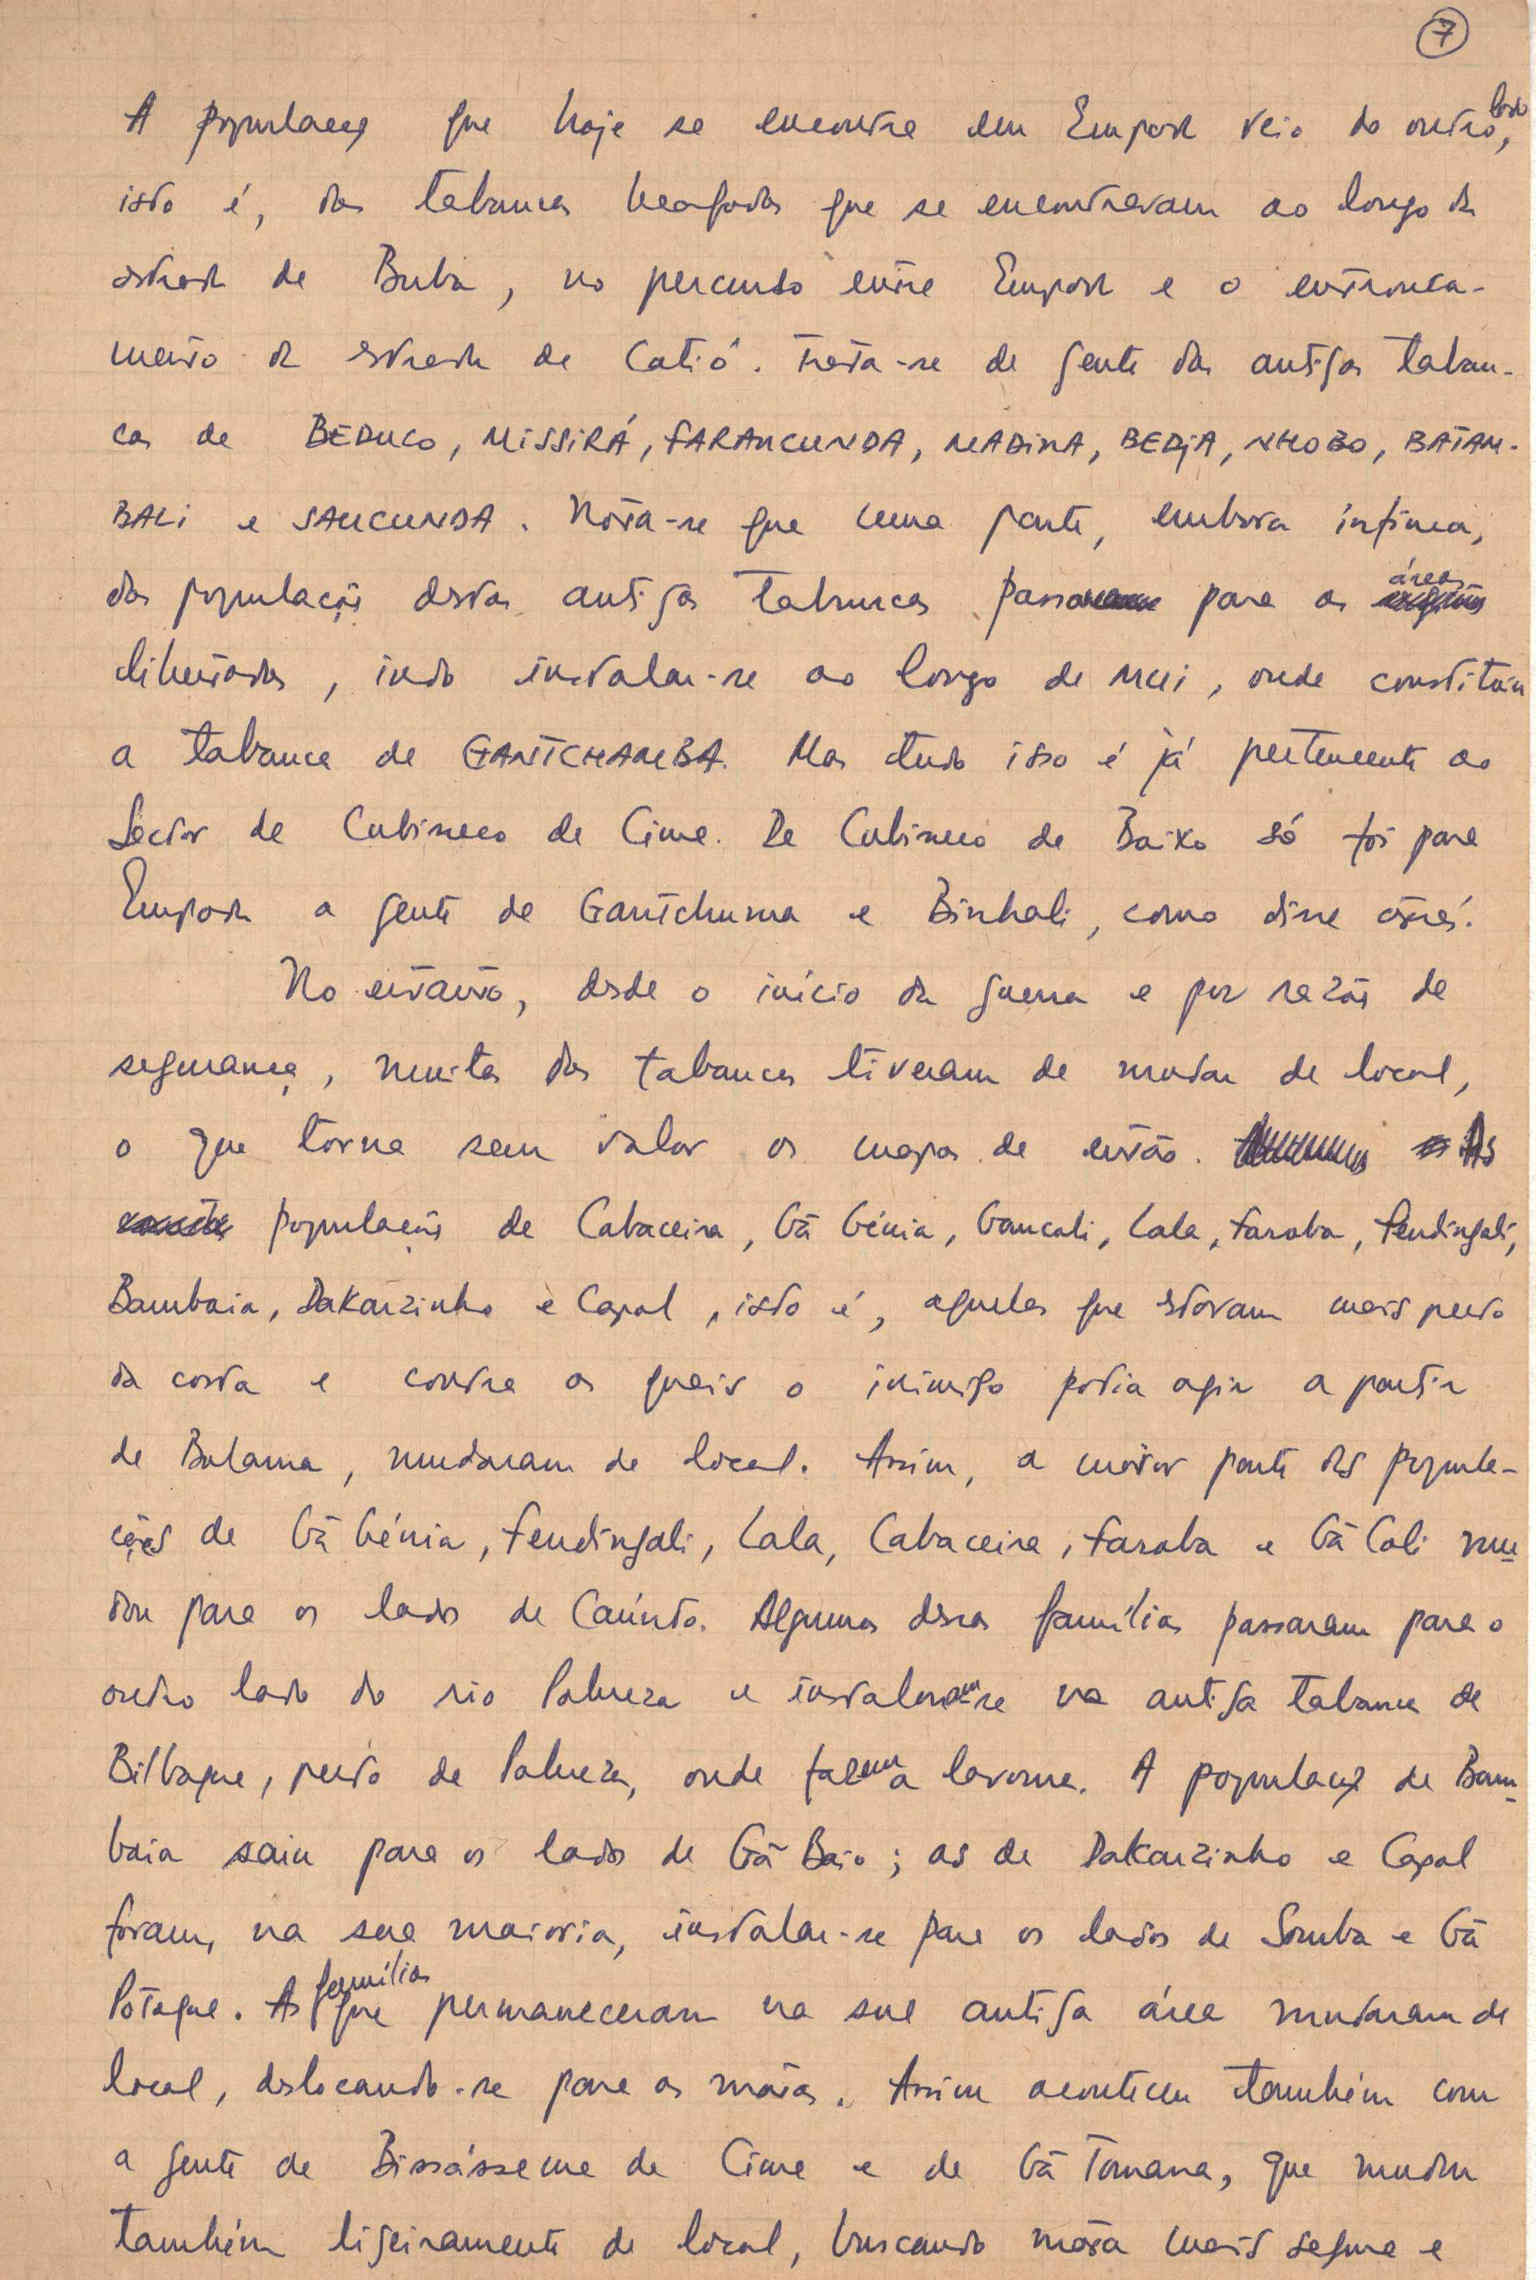 7
A população que hoje se encontra em Empada veio do outro lado,
isto é, das tabancas beafadas que se encontravam ao longo da
estrada de Buba, no percurso entre Empada e o entronca-
mento da estrada de Catió. Trata-se de gente das antigas taban-
cas de BEDUCO, MISSIRÁ, FARANCUNDA, MADINA, BEDJA, NHOBO, BATAM-
BALI e SAUCUNDA. Nota-se que uma parte, embora ínfima,
das populações destas antigas tabancas passou para as áreas
libertadas, indo instalar-se ao longo de NUI, onde constitui
a tabanca de GANTCHAMBA. Mas tudo isso é já pertencente ao
Sector de Cubisseco de Cima. De Cubisseco de Baixo só foi para
Empada a gente de Gantchuma e Binhali, como disse atrás.
No entanto, desde o início da guerra e por razões de
segurança, muitas das tabancas tiveram de mudar de local,
o que torna sem valor os mapas de então. As
populações de Cabaceira, Gã Génia, Gancali, Lala, Faraba, Fendingali,
Bambaia, Dakarzinho e Capal, isto é, aquelas que estavam mais perto
da costa e contra as quais o inimigo podia agir a partir
de Bolama, mudaram de local. Assim, a maior parte das popula-
ções de Gã Génia, Fendingali, Lala, Cabaceira, Faraba e Gã Cali mu-
dou para os lados de Caúnto. Algumas dessas famílias passaram para o
outro lado do rio Pobreza e instalaram-se na antiga tabanca de
Bilbaque, perto de Pobreza, onde fazem a lavoura. A população de Bam-
baia saiu para os lados de Gã Baio; as de Dakarzinho e Capal
foram, na sua maioria, instalar-se para os lados de Somba e Gã
Potaque. As famílias que permaneceram na sua antiga área mudaram de
local, deslocando-se para as matas. Assim aconteceu também com
a gente de Bissásseme de Cima e de Gã Tomana, que mudou
também ligeiramente de local, buscando mata mais segura e